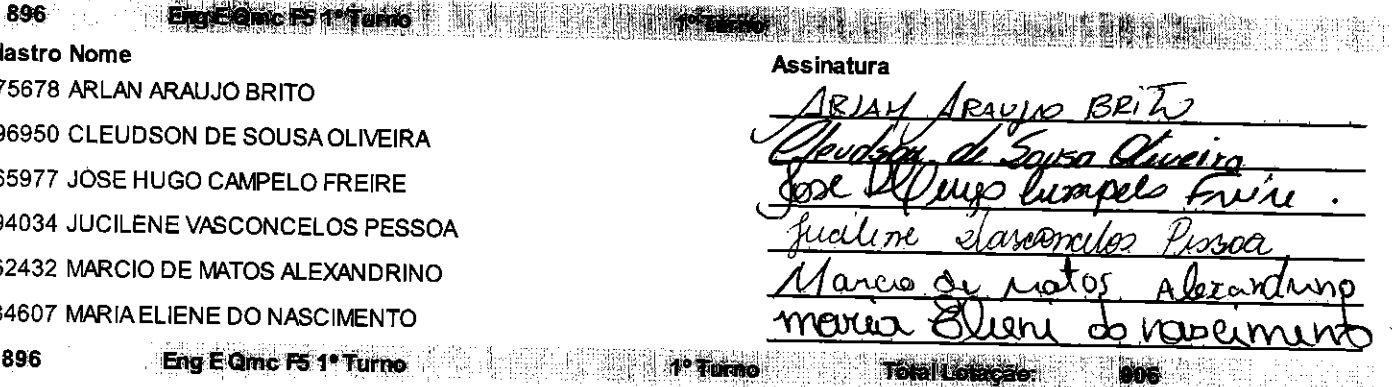 896 Eng E Qmc F5 1º Turno 1º Turno
lastro Nome Assinatura
75678 ARLAN ARAUJO BRITO ARLAN ARAUJO BRITO
96950 CLEUDSON DE SOUSA OLIVEIRA Cleudson de Sousa Oliveira
65977 JOSE HUGO CAMPELO FREIRE Jose Hugo Campelo Freire.
94034 JUCILENE VASCONCELOS PESSOA Jucilene Vasconcelos Pessoa
62432 MARCIO DE MATOS ALEXANDRINO Marcio de Matos Alexandrino
34607 MARIA ELIENE DO NASCIMENTO maria Eliene do nascimento
896 Eng E Qmc F5 1º Turno 1º Turno Total Lotação: 006